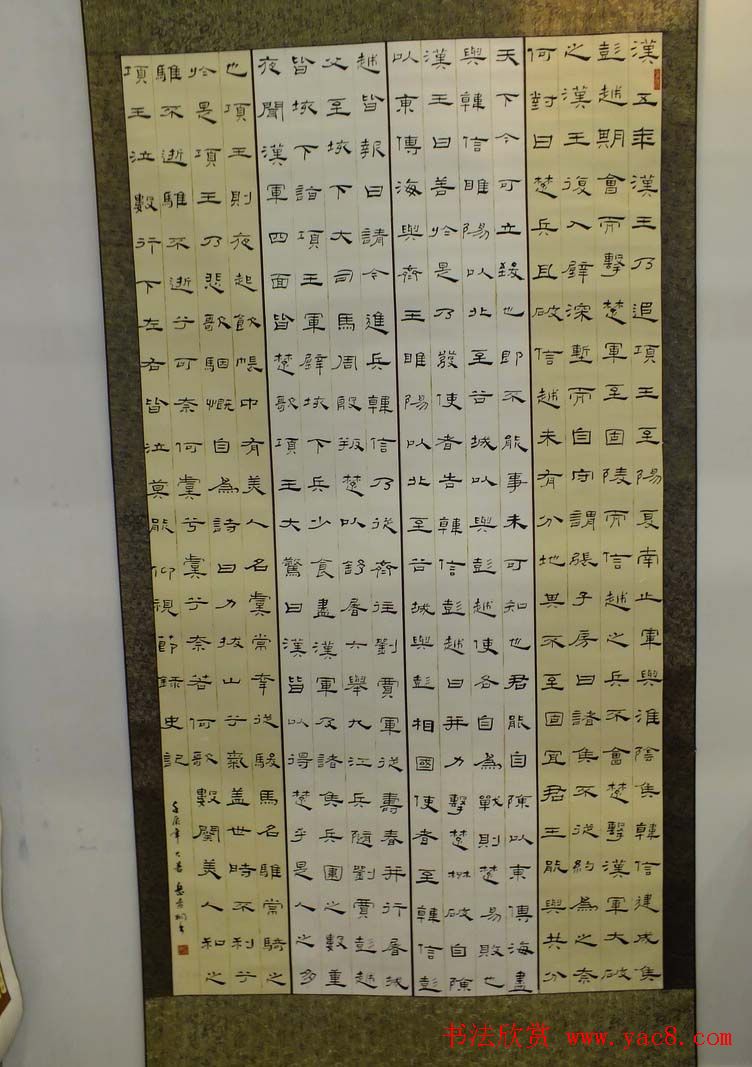 漢五年漢王乃追項王至陽夏南止軍與淮陰矦韓信建成矦
彭越期會而擊楚軍至固陵而信越之兵不會楚擊漢軍大破
之漢王復入壁深塹而自守謂張子房曰諸矦不從約為之奈
何對曰楚兵且破信越未有分地其不至固宜君王能與共分
天下今可立致也即不能事未可知也君能自陳以東傳海盡
與韓信睢陽以北至谷城以與彭越使各自為戰則楚易敗也
漢王曰善於是乃發使者告韓信彭越曰并力擊楚楚破自陳
以東傳海與齊王睢陽以北至谷城與彭相國使者至韓信彭
越皆報曰請今進兵韓信乃從齊往劉賈軍從壽春并行屠城
父至垓下大司馬周殷叛楚以舒屠六舉九江兵隨劉賈彭越
皆垓下詣項王軍壁垓下兵少食盡漢軍及諸矦兵圍之數重
夜聞漢軍四面皆楚歌項王大驚曰漢皆以得楚乎是人之多
也項王則夜起飲帳中有美人名虞常幸從駿馬名騅常騎之
於是項王乃悲歌慷慨自為詩曰力拔山兮氣蓋世時不利兮
騅不逝騅不逝兮可奈何虞兮虞兮奈若何歌數闋美人和之
項王泣數行下左右皆泣莫能仰視節錄史記
壬辰年大暑
书法欣赏 www.yac8.com